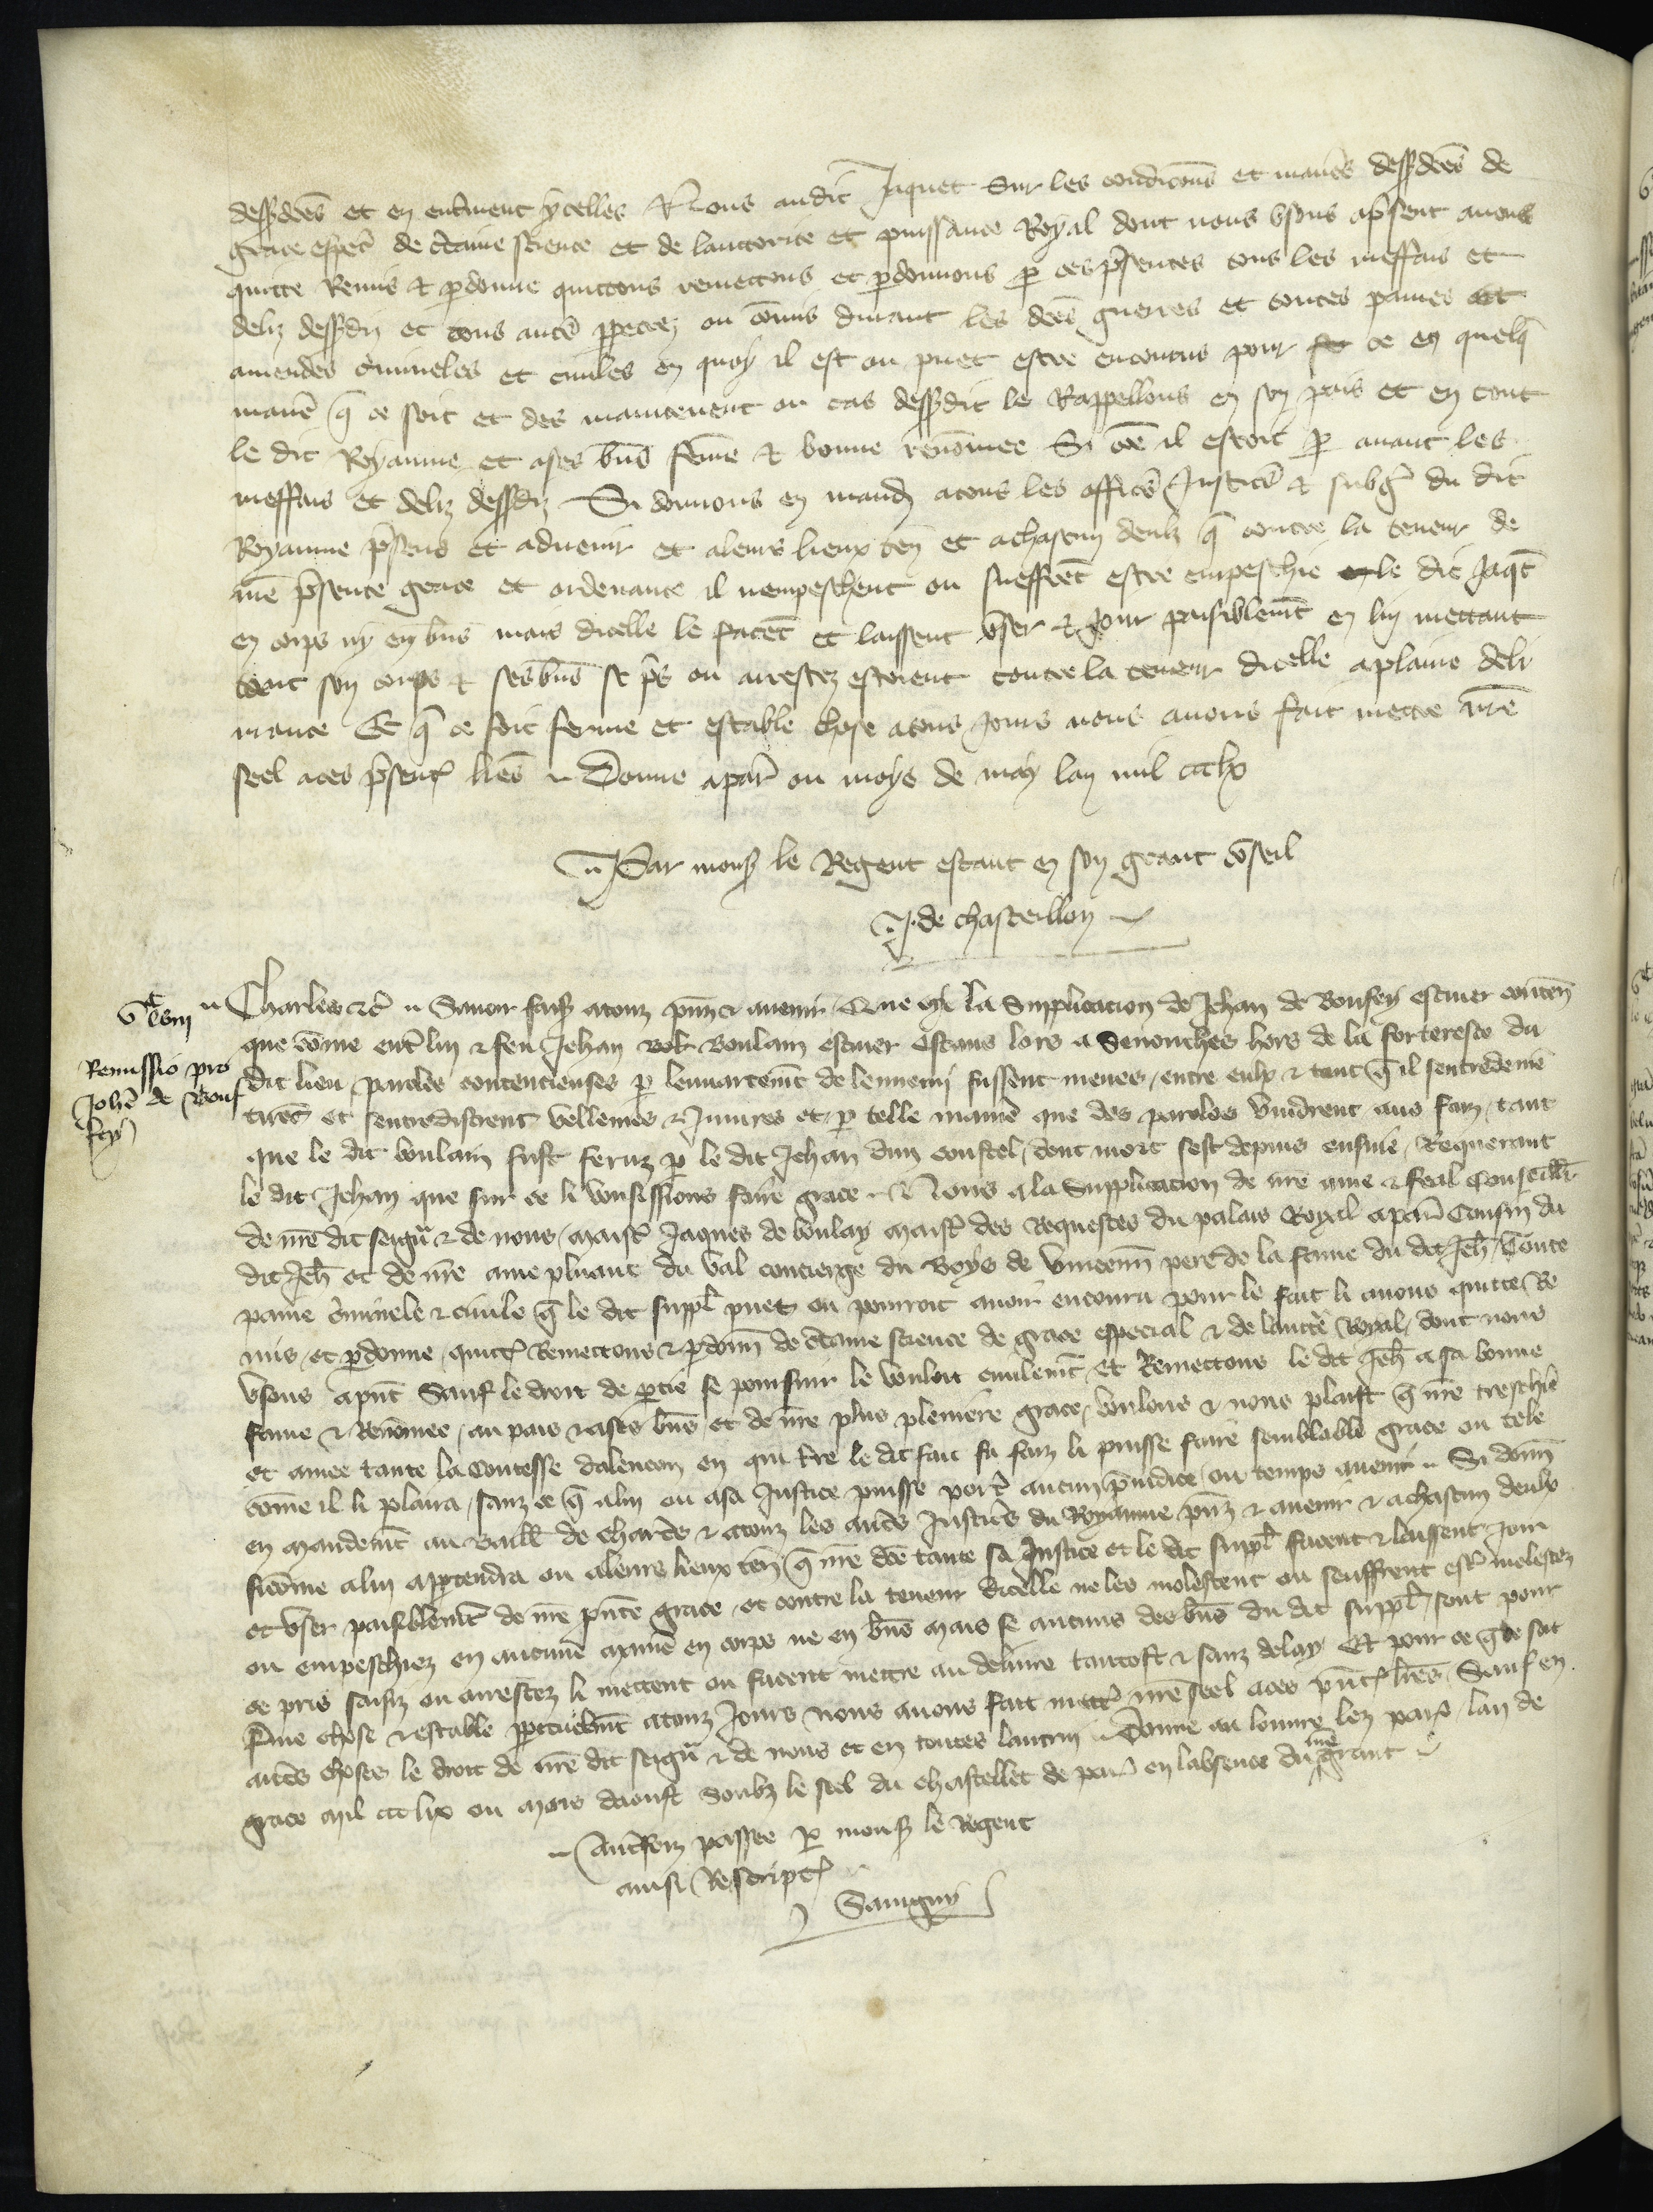 dessdces et en enterinent ycelles Nous audit Jaquet sur les condicons et manes dessdces de
grace espect de ctaine science et de lauctorite et puissance Royal dont nous usons apsent avons
quitte Remis et pdonne quittons remettons et pdonnons p ces psentes tous les meffais et
deliz dessdiz et tous autres ppetrez ou comis durant les dces guerres et toutes paines et
amendes crimineles et civiles en quoy il est ou puet estre encouru pour ce en quelq
mane q ce soit et des maintenent ou cas dessdit le Rappellons en son pais et en tout
le dit Royaume et ases bns feme et bonne renomee Si coe il estoit p avant les
meffais et deliz dessdiz Si donnons en mand atous les offices Justices et subgz du dit
Royaume psens et advenir et aleurs lieux ten et achascun deulz q contre la teneur de
nre psente grace et ordenance il nempeschent ou sueffret estre empeschie le dit Jaqt
en corps ny en bns mais dicelle le facet et laissent user et Jouir paisiblemt en luy mettant
son corps et ses bns se ps ou arrestez estoient contre la teneur dicelle aplaine deli
vrance Et q ce soit ferme et estable chose atous Jours nous avons fait mettre nre
seel aces psent lres Donne apar ou moys de may lan mil ccclx
Par mons le Regent estant en son grant coseil
J. de chasteillon
vc lxiii
Remissio pro
Johe de Bouf
fey
Charles etc Savoir fais atouz psnz et avenir Que oye la Supplicacion de Jehan de Boufey escuier conten
que come entre luy et feu Jehan Boulain escuier estans lors a Senonches hors de la forteresce du
dit lieu paroles contencieuses p lenuortemt de lennemi fussent meues entre eulx et tant q il sentredeme
tirēt et sentredistrent vellenies et Injures et p telle maniere que des paroles vindrent aus faiz tant
que le dit boulain fust feruz p le dit Jehan dun coustel dont mort sest depuis ensuie Requerant
le dit Jehan que sur ce li voulsissions faire grace Nous a la Supplicacion de nre ame et feal Conseill
de nre dit seigu et de nous maist Jaques de boulay maist des Requestes du palais Royal apar Cousin du
dit Jeh et de nre ame plusant du val concierge du Boys de vincenn pere de la fame du dit Jeh toute
paine criminele et civile q le dit suppl puet ou pourroit avoir encouru pour le fait li avons quitte Re
mis et pdonne quitt Remettons et pdonn de ctaine science de grace especial et de lauctte Royal dont nous
usons apnt Sauf le droit de ptie se poursuir le vouloit civilemt et Remettons le dit Jeh a sa bonne
fame et Renomee au pais et ases bns et de nre plus pleniere grace voulons et nous plaist q nre treschie
et amee tante la Contesse dalencon en qui tre le dit fait fu faiz li puisse faire semblable grace ou tele
come il li plaira sanz ce q alui ou asa Justice puisse port aucun piudice ou temps avenir Si donn
en mandemt au Baill de chartres et atouz les autres Justices du Royaume psnz et avenir et achascun deulx
sicome alui apptendra ou aleurs lieux ten q nre dce tante sa Justice et le dit suppl facent et laissent Joir
et user paisiblemt de nre pnte grace et contre la teneur dicelle ne les molestent ou seuffrent est molestez
ou empeschiez en aucune mane en corps ne en bns Mais se aucuns des bns du dit suppl sont pour
ce pris saisiz ou arrestez li mettent ou facent mettre au delivre tantost et sanz delay Et pour ce q ce soit
ferme chose et estable ppetuelmt atouz Jours nous avons fait mett nre seel aces pnt lres Sauf en
autres choses le droit de nre dit seigu et de nous et en toutes lautrui Donne au louvre lez paris lan de
grace mil ccclix ou mois daoust Soubz le seel du chastellet de par en labsence du nre grant
Autrefoiz passee p mons le Regent
ainsi Rescript
Savigny